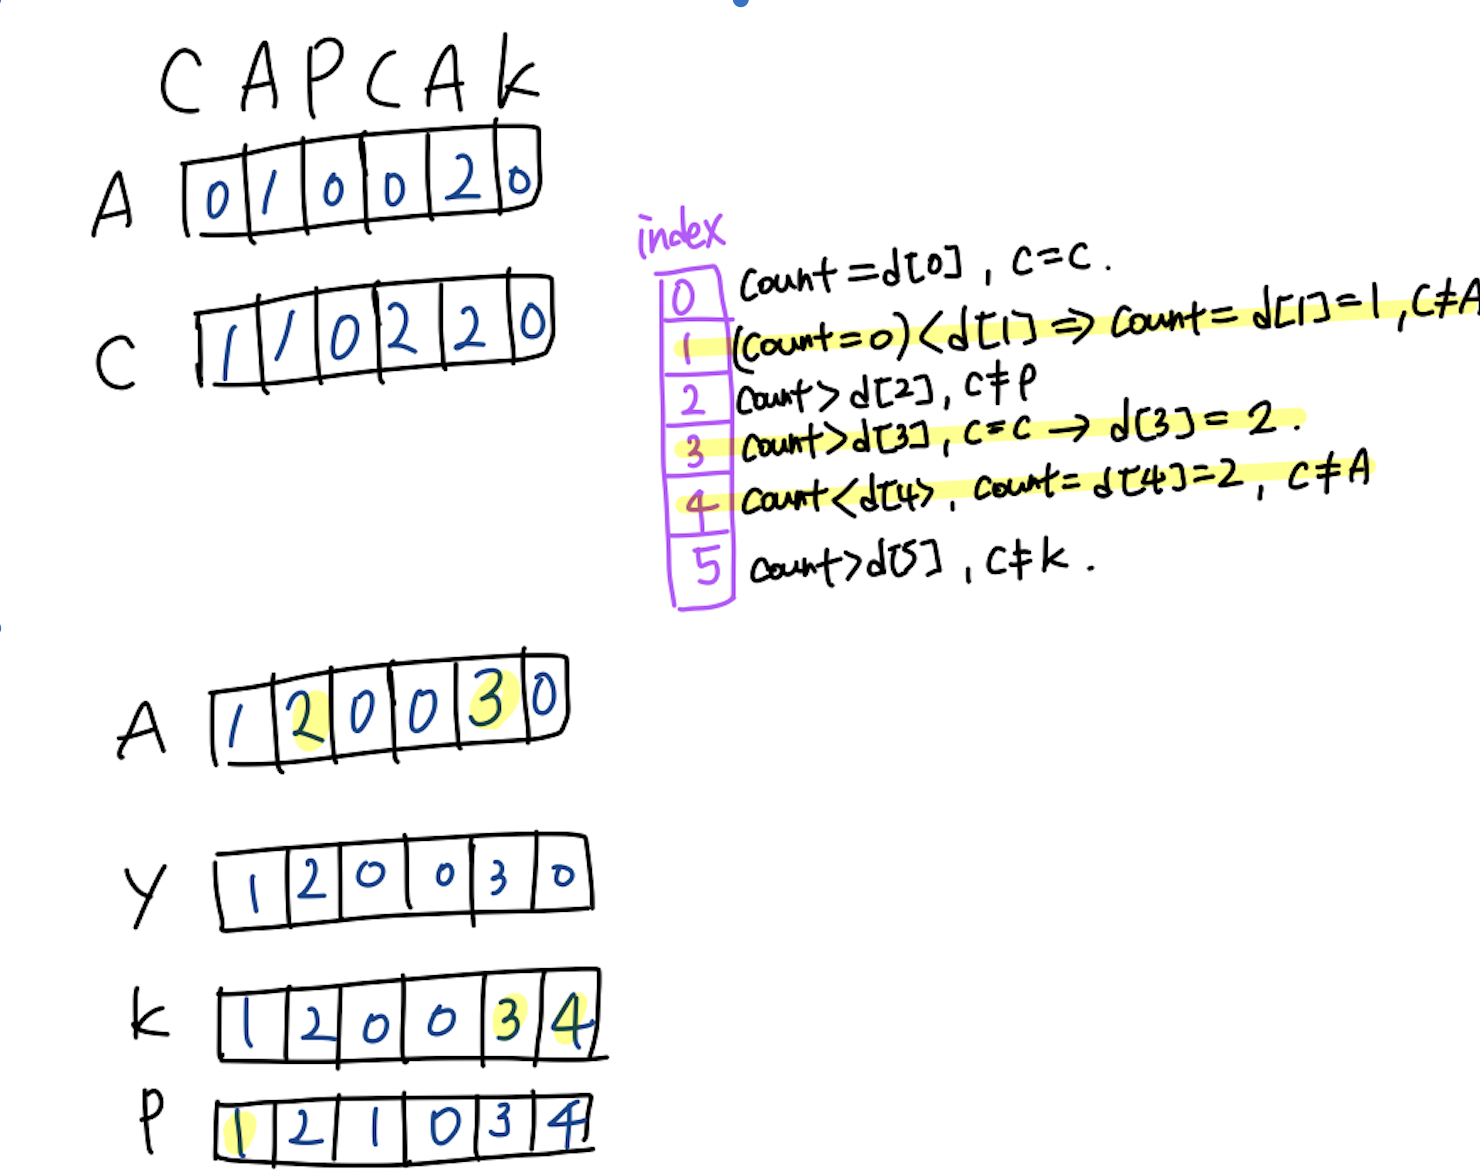 C A P C A K
A 0 1 0 0 2 0
index
0 count = d[0] , C = C .
C 1 1 0 2 2 0
1 (count=0) < d[1] ⇒ count = d[1] = 1 , C ≠ A
2 count > d[2] , C ≠ P
3 count > d[3] , C = C → d[3] = 2 .
4 count < d[4> , count = d[4] = 2 , C ≠ A
5 count > d[5] , C ≠ k .
A 1 2 0 0 3 0
Y 1 2 0 0 3 0
K 1 2 0 0 3 4
P 1 2 1 0 3 4